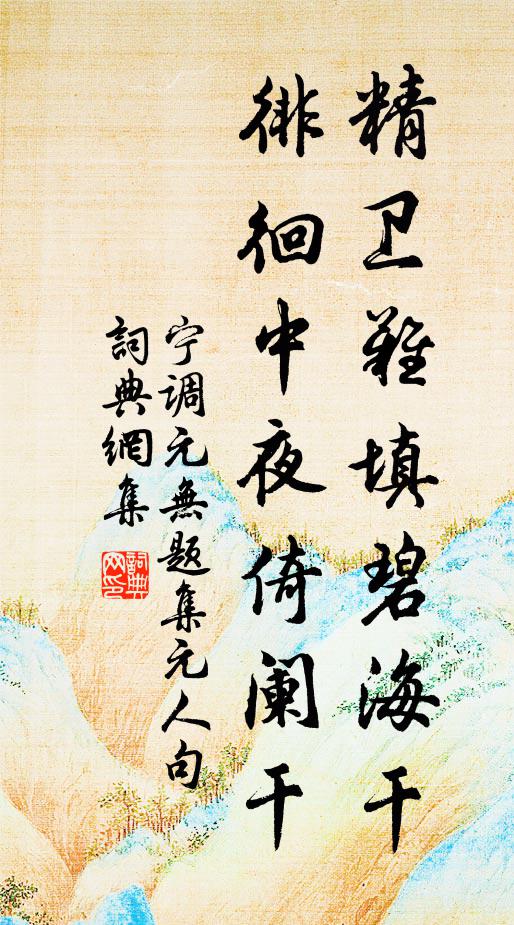 精卫難填碧海干
徘徊中夜倚阑干
宁调元無题集元人句
詞典網集
詞典网印